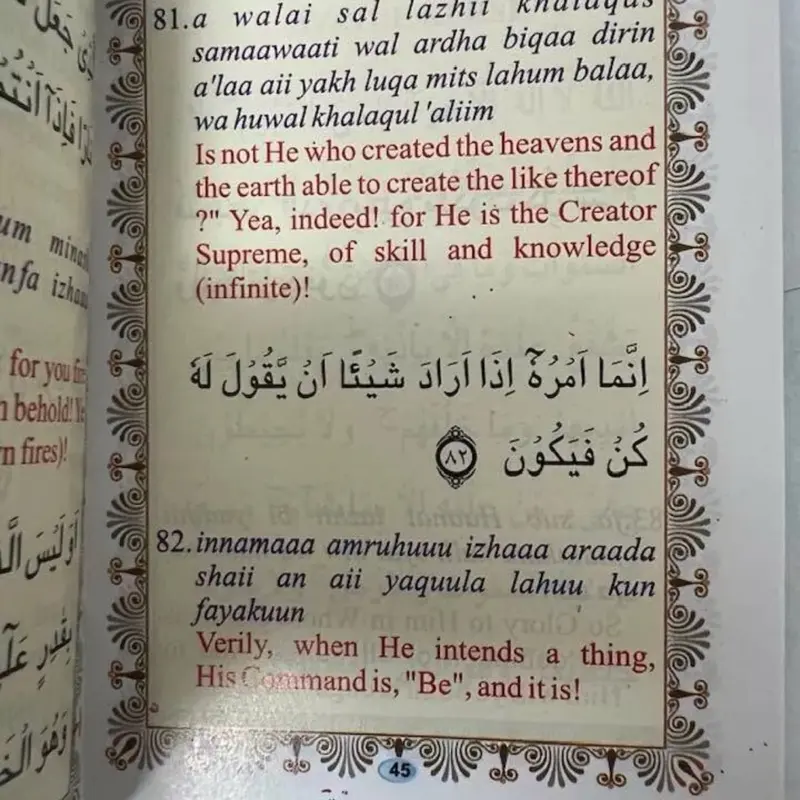 81. a walai sal lazhii khalaqas
samaawaati wal ardha biqaa dirin
a'laa aii yakh luqa mits lahum balaa,
wa huwal khalaqul 'aliim
Is not He who created the heavens and
the earth able to create the like thereof
?" Yea, indeed! for He is the Creator
Supreme, of skill and knowledge
(infinite)!
اِنَّمَاۤ اَمْرُهٗۤ اِذَاۤ اَرَادَ شَيْئًـا اَنْ يَّقُوْلَ لَهٗ
كُنْ فَيَكُوْنُ ﴿٨٢﴾
82. innamaaa amruhuuu izhaaa araada
shaii an aii yaquula lahuu kun
fayakuun
Verily, when He intends a thing,
His Command is, "Be", and it is!
45
for you
behold!
fires)!